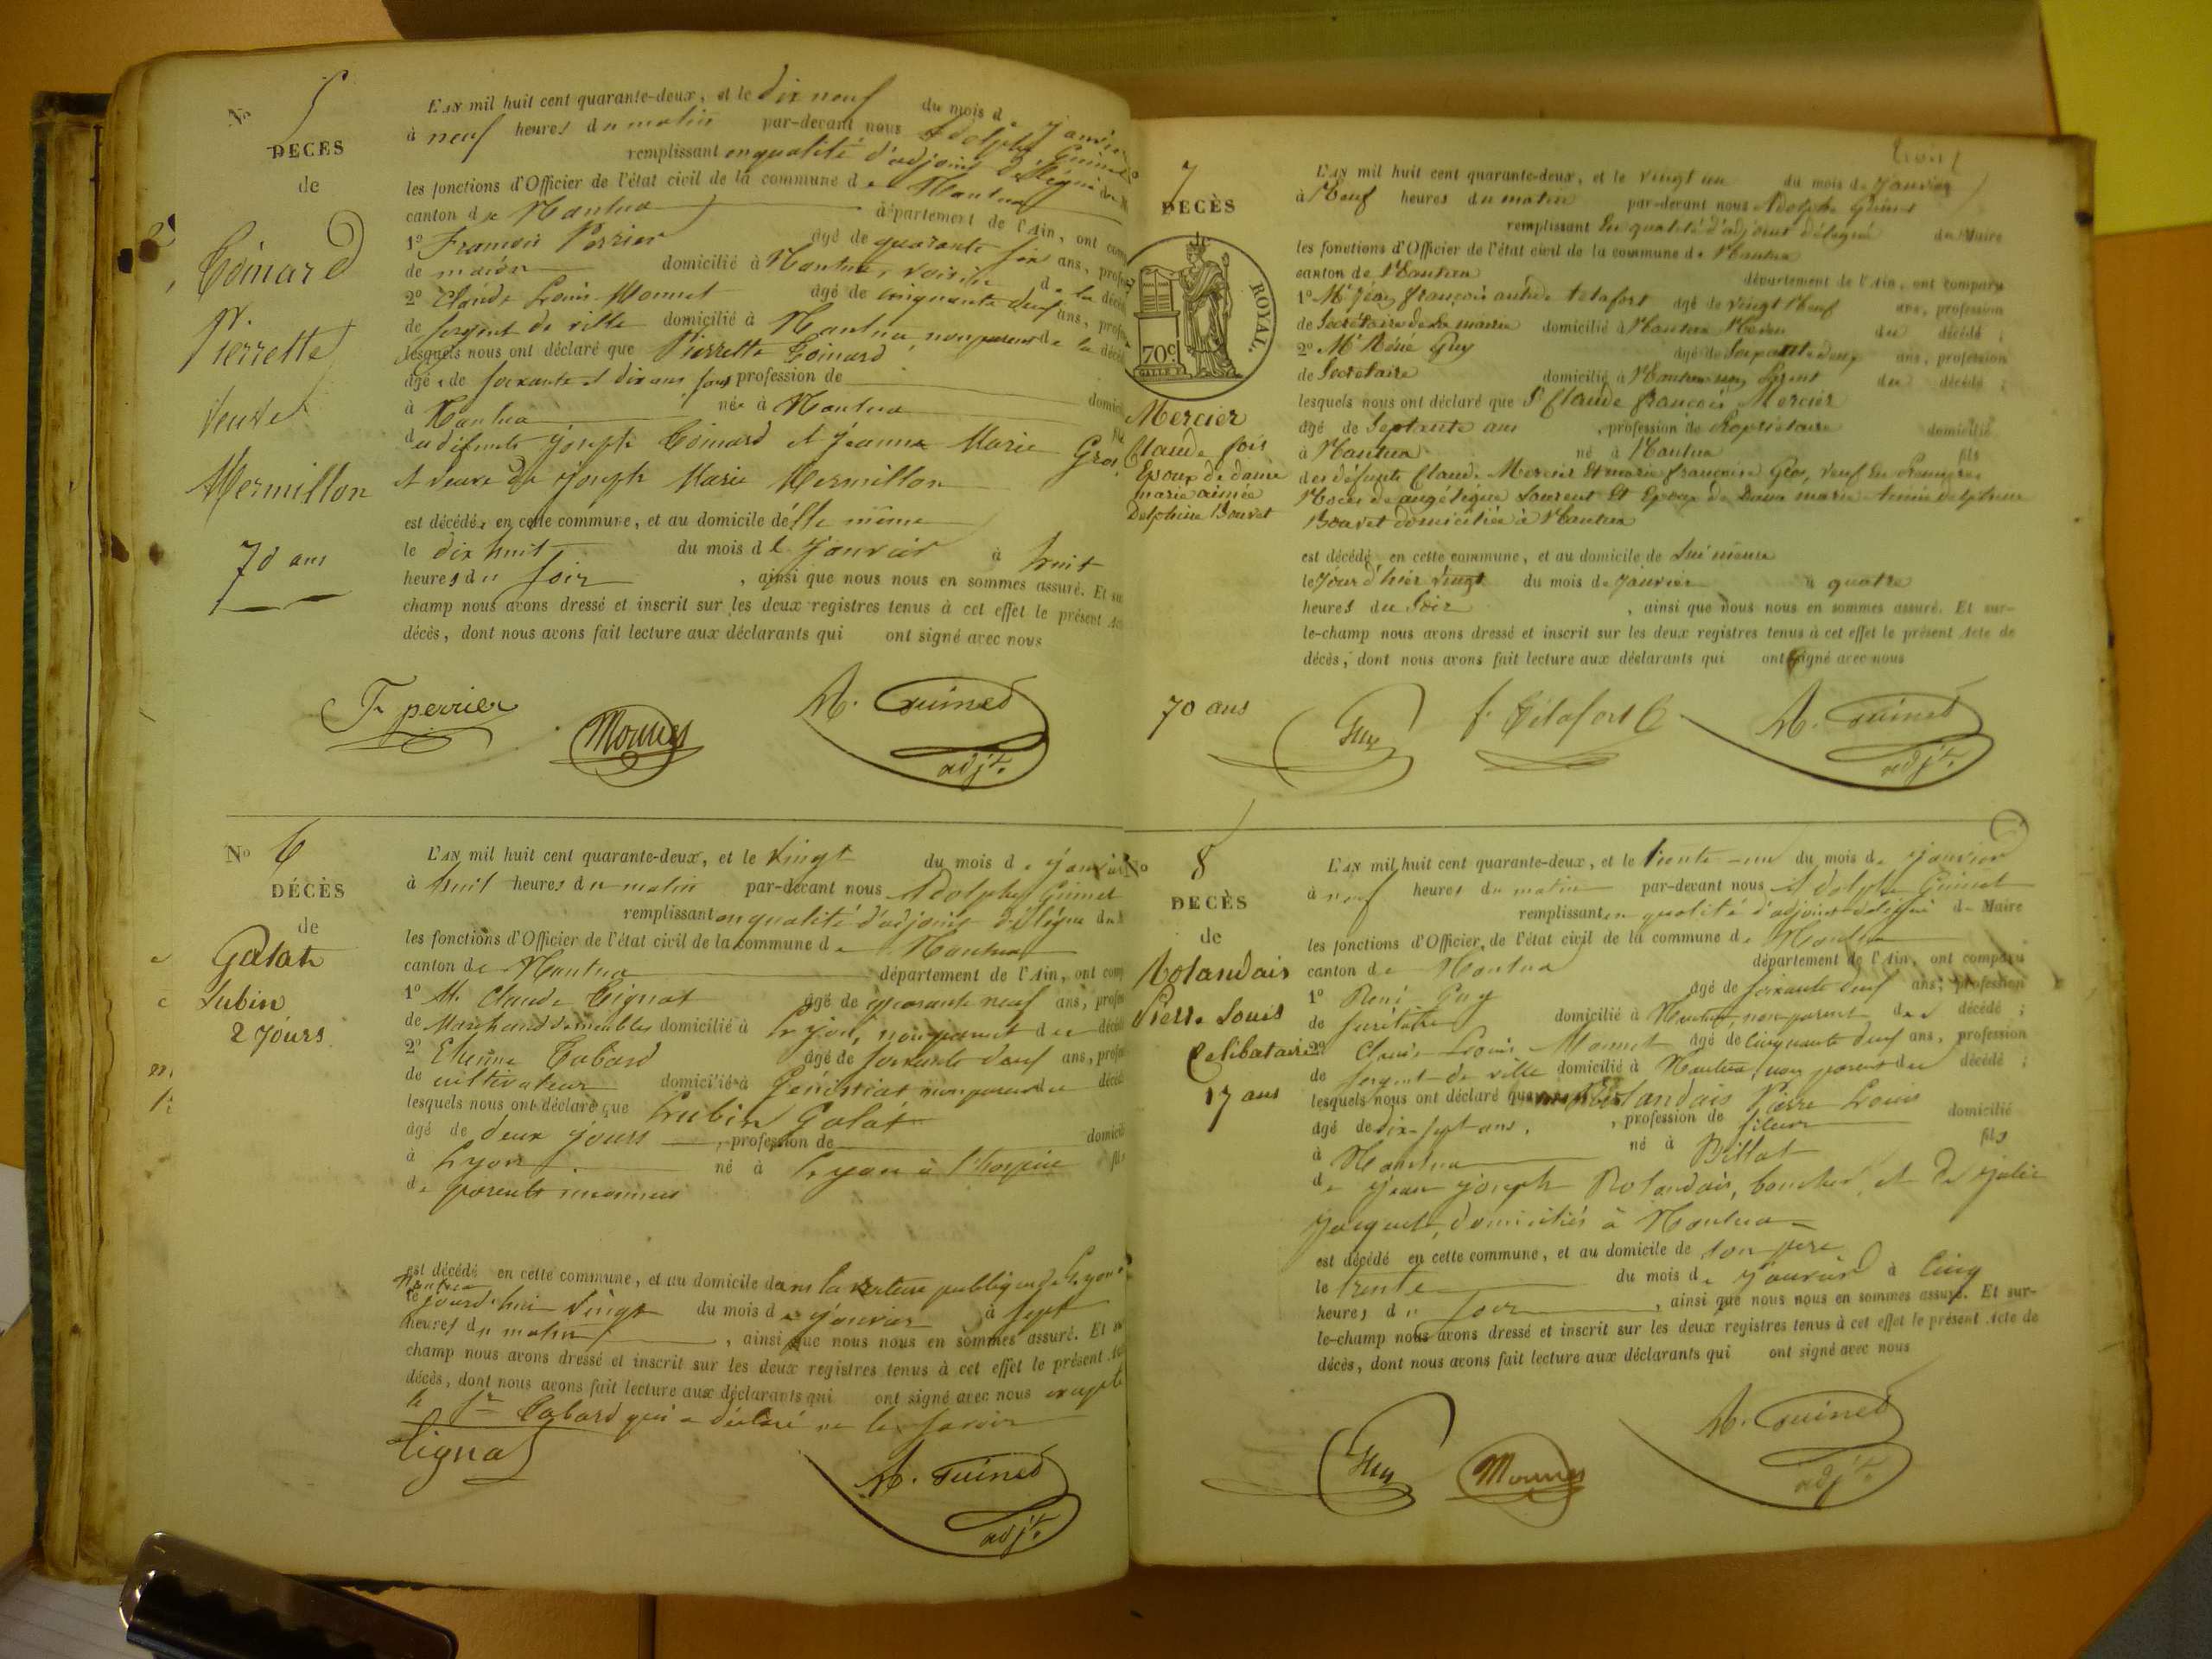 No 5
DECES
de
Coinard
Pierrette
veuve
Mermillon
70 ans
L'AN mil huit cent quarante-deux, et le dix neuf du mois de janvier
à neuf heures du matin par-devant nous Adolphe Guinet
remplissant en qualité d'adjoint délégué du
les fonctions d'Officier de l'état civil de la commune de Nantua
canton de Nantua département de l'Ain, ont
1º François Perrier âgé de quarante six ans,
de maçon domicilié à Nantua, voisin de la
2º Claude Louis Monnet âgé de cinquante deux ans,
de sergent de ville domicilié à Nantua non parent de la
lesquels nous ont déclaré que Pierrette Coinard
âgée de soixante et dix ans sans profession de
à Nantua née à Nantua
du défunts Joseph Coinard et Jeanne Marie Gros
et veuve de Joseph Marie Mermillon
est décédée en cette commune, et au domicile d'elle même
le dix huit du mois de Janvier à huit
heures du soir , ainsi que nous nous en sommes assuré. Et
champ nous avons dressé et inscrit sur les deux registres tenus à cet effet le présent
décès, dont nous avons fait lecture aux déclarants qui ont signé avec nous
F. perrier Monnet A. Guinet
adjt.
No 6
DÉCÈS
de
Galat
Lubin
2 Jours
L'AN mil huit cent quarante-deux, et le Vingt du mois de janvier
à huit heures du matin par-devant nous Adolphe Guinet
remplissant en qualité d'adjoint délégué du
les fonctions d'Officier de l'état civil de la commune de Nantua
canton de Nantua département de l'Ain, ont
1º M. Claude Tignat âgé de quarante neuf ans,
de Marchand de meubles domicilié à Lyon, non parent du
2º Etienne Cabard âgé de soixante deux ans,
de cultivateur domicilié à Génissiat non parent du
lesquels nous ont déclaré que Lubin Galat
âgé de deux jours , profession de
à Lyon né à Lyon à l'hospice
de parents inconnus
est décédé en cette commune, et au domicile dans la voiture publique de Lyon à
Nantua
le jourd'hui Vingt du mois de janvier à sept
heures du matin , ainsi que nous nous en sommes assuré. Et
champ nous avons dressé et inscrit sur les deux registres tenus à cet effet le présent
décès, dont nous avons fait lecture aux déclarants qui ont signé avec nous excepté
le Sr Cabard qui a déclaré ne le savoir
Tignat
A. Guinet
adjt.
trois
7
DECÈS
ROYAL.
70c
Mercier
Claude fois
Epoux de dame
marie aimée
Delphine Bouvet
70 ans
L'AN mil huit cent quarante-deux, et le vingt un du mois de Janvier
à Neuf heures du matin par-devant nous Adolphe Guinet
remplissant En qualité d'adjoint délégué du Maire
les fonctions d'Officier de l'état civil de la commune de Nantua
canton de Nantua département de l'Ain, ont comparu
1º Mr Jean françois âgé de vingt Neuf ans, profession
de Secrétaire de la mairie domicilié à Nantua Neveu du décédé ;
2º Mr Réné Guy âgé de Soixante deux ans, profession
de Secretaire domicilié à Nantua non parent du décédé ;
lesquels nous ont déclaré que Sr Claude françois Mercier
âgé de Septante ans , profession de Propriétaire domicilié
à Nantua né à Nantua fils
des défunts Claude Mercier et marie françoise Gros, veuf En Premières
Noces de angélique Laurent Et Epoux de Dame marie Aimée Delphine
Bouvet domiciliée à Nantua
est décédé en cette commune, et au domicile de Lui même
le Jour d'hier vingt du mois de Janvier à quatre
heures du Soir , ainsi que nous nous en sommes assuré. Et sur-
le-champ nous avons dressé et inscrit sur les deux registres tenus à cet effet le présent Acte de
décès, dont nous avons fait lecture aux déclarants qui ont signé avec nous
Guy A. Guinet
adjt.
No 8
DECÈS
de
Rolandais
Pierre Louis
Celibataire
17 ans
L'AN mil huit cent quarante-deux, et le trente-un du mois de janvier
à neuf heures du matin par-devant nous Adolphe Guinet
remplissant en qualité d'adjoint délégué du Maire
les fonctions d'Officier de l'état civil de la commune de Nantua
canton de Nantua département de l'Ain, ont comparu
1º René Guy âgé de soixante deux ans, profession
de secrétaire domicilié à Nantua, non parent du décédé ;
2º Claude Louis Monnet âgé de cinquante deux ans, profession
de sergent de ville domicilié à Nantua, non parent du décédé ;
lesquels nous ont déclaré que Rolandais Pierre Louis
âgé de dix-sept ans, , profession de fileur domicilié
à Nantua né à Billiat fils
de Jean Joseph Rolandais, boucher, et de Julie
Jacquet, domiciliés à Nantua
est décédé en cette commune, et au domicile de son père
le trente du mois de janvier à cinq
heures du soir , ainsi que nous nous en sommes assuré. Et sur-
le-champ nous avons dressé et inscrit sur les deux registres tenus à cet effet le présent Acte de
décès, dont nous avons fait lecture aux déclarants qui ont signé avec nous
Guy Monnet A. Guinet
adjt.